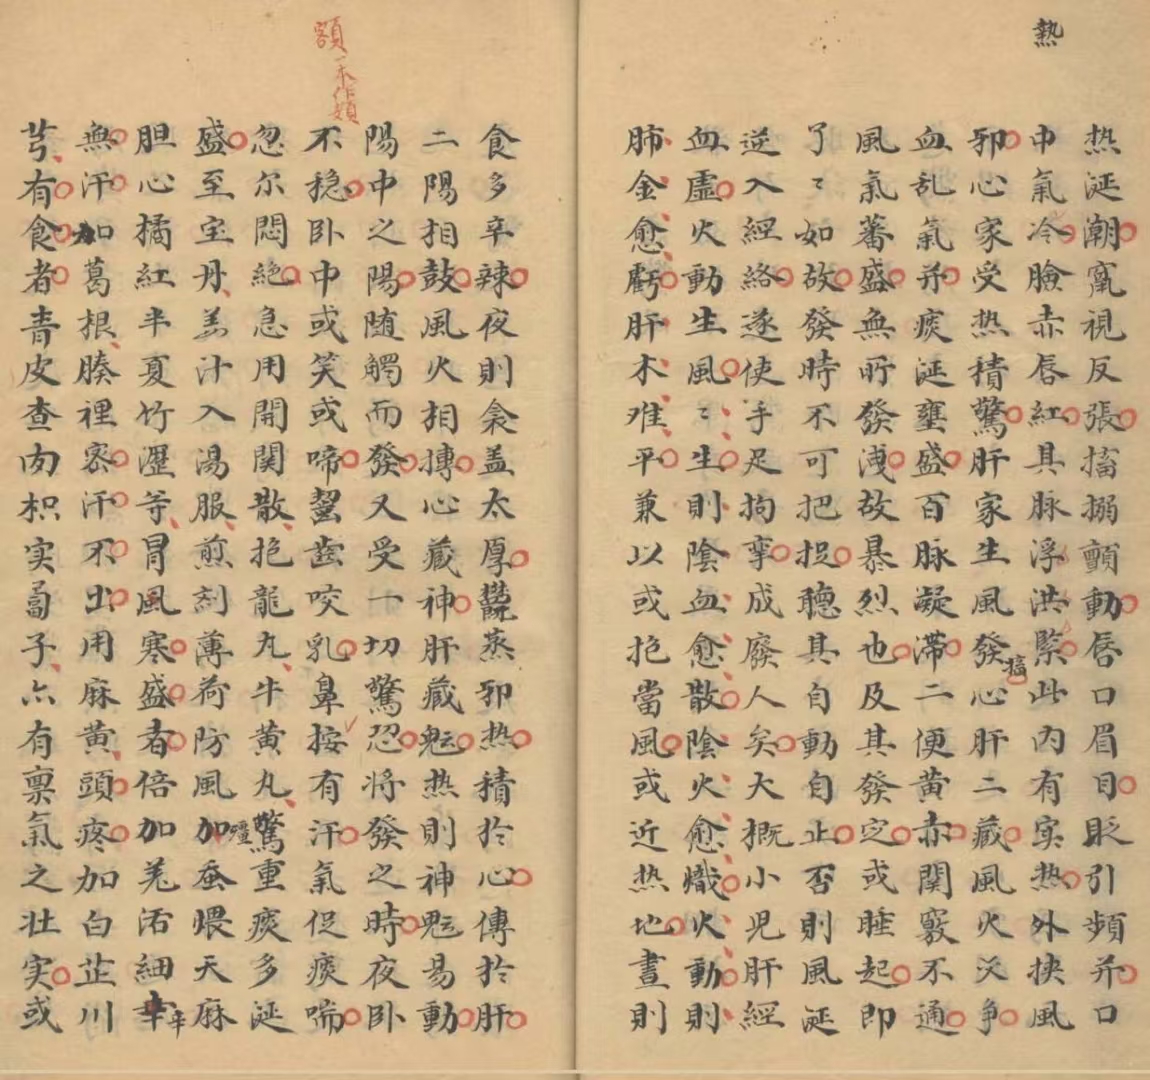 熱
热涎潮窜視反張搐搦顫動唇口眉目眨引頻并口
中氣冷臉赤唇紅其脉浮洪緊此内有实热外挟風
邪心家受热積驚肝家生風發搐心肝二藏風火交争
血乱氣并痰涎壅盛百脉凝滞二便黄赤関竅不通
風氣蕃盛無所發洩故暴烈也及其發定或睡起即
了〻如故發時不可把捉聴其自動自止否則風涎
逆入經絡遂使手足拘挛成廢人矣大概小児肝經
血虚火動生風〻生則陰血愈散陰火愈熾火動則
肺金愈虧肝木难平兼以或抱當風或近热地晝則
食多辛辣夜則衾盖太厚鬱蒸邪热積於心傳於肝
二陽相鼓風火相摶心藏神肝藏魂热則神魂易動
陽中之陽随觸而發又受一切驚恐將發之時夜卧
額一本作頞
不稳卧中或笑或啼齧齒咬乳鼻按有汗氣促痰喘
忽尔悶絶急用開関散抱龍丸牛黄丸驚重痰多涎
盛至宝丹姜汁入湯服煎剂薄荷防風加殭蚕煨天麻
胆心橘红半夏竹瀝等冒風寒盛者倍加羌活細辛
無汗加葛根腠裡密汗不出用麻黄頭疼加白芷川
芎有食者青皮查肉枳实蔔子亦有禀氣之壮实或